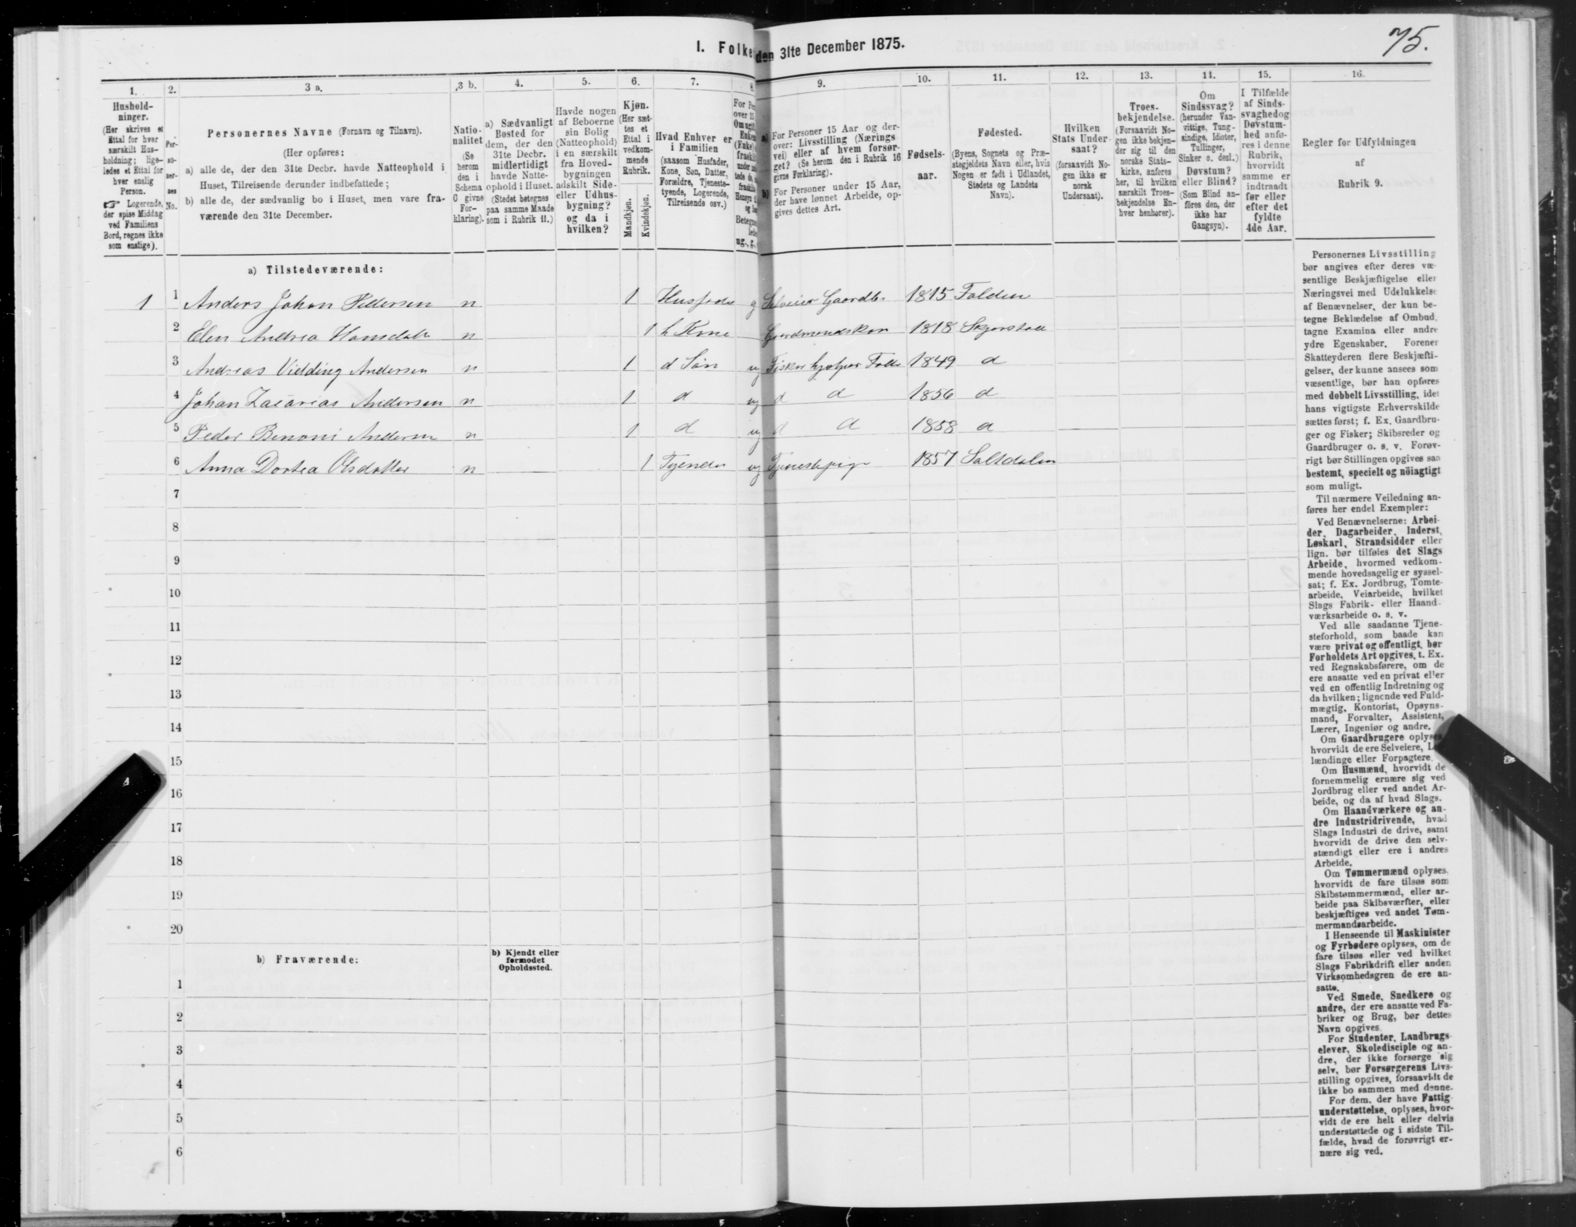 75.
I. Folke
den 31te December 1875.
1. 2. 3 a. 3 b. 4. 5. 6. 7. 8. 9. 10. 11. 12. 13. 14. 15. 16.
Hushold-
ninger.
(Her skrives et
Ettal for hver
særskilt Hus-
holdning; lige-
ledes et Ettal for
hver enslig
Person.
☞ Logerende,
der spise Middag
ved Familiens
Bord, regnes ikke
som enslige).
Per-
so-
ner-
nes
No.
Personernes Navne (Fornavn og Tilnavn).
(Her opføres:
a) alle de, der den 31te Decbr. havde Natteophold i
Huset, Tilreisende derunder indbefattede;
b) alle de, der sædvanlig bo i Huset, men vare fra-
værende den 31te December.
Natio-
nalitet
(Se
herom
den i
Schema
C givne
For-
klaring).
a) Sædvanligt
Bosted for
dem, der den
31te Decbr.
midlertidigt
havde Natte-
ophold i Huset.
(Stedet betegnes
paa samme Maade
som i Rubrik 11.)
Havde nogen
af Beboerne
sin Bolig
(Natteophold)
i en særskilt
fra Hoved-
bygningen
adskilt Side-
eller Udhus-
bygning?
og da i
hvilken?
Kjøn.
(Her sæt-
tes et
Ettal i
vedkom-
mende
Rubrik.
Mandkjøn.
Kvindekjøn.
Hvad Enhver er
i Familien
(saasom Husfader,
Kone, Søn, Datter,
Forældre, Tjeneste-
tyende, Logerende,
Tilreisende osv.)
a) For Personer 15 Aar og der-
over: Livsstilling (Nærings
vei) eller af hvem forsør-
get? (Se herom den i Rubrik 16
givne Forklaring).
b) For Personer under 15 Aar,
der have lønnet Arbeide, op-
gives dettes Art.
Fødsels-
aar.
Fødested.
(Byens, Sognets og Præ-
stegjeldets Navn eller, hvis
Nogen er født i Udlandet,
Stedets og Landets
Navn).
Hvilken
Stats Under-
saat?
(forsaavidt No-
gen ikke er
norsk
Undersaat).
Troes-
bekjendelse.
(Forsaavidt No-
gen ikke bekjen-
der sig til den
norske Stats-
kirke, anføres
her, til hvilken
særskilt Troes-
bekjendelse En-
hver henhører).
Om
Sindssvag?
(herunder Van-
vittige, Tung-
sindige, Idioter,
Tullinger,
Sinker o. desl.)
Døvstum?
eller Blind?
(Som Blind an-
føres den, der
ikke har
Gangsyn).
I Tilfælde
af Sinds-
svaghedog
Døvstum-
hed anfø-
res i denne
Rubrik,
hvorvidt
samme er
indtraadt
før eller
efter det
fyldte
4de Aar.
Regler for Udfyldningen
af
Rubrik 9.
a) Tilstedeværende:
1 1 Anders Johan Pedersen n 1 Husfader g Selveier Gaardbr 1815 Folden
2 Elen Andrea Hansdatr n 1 h Kone Gaardmandskon 1818
3 Andreas Vidding Andersen n 1 d Søn ug Fisker hjælper Fader 1849 d
4 Johan Zacarias Andersen n 1 d ug d d 1856 d
5 Peder Benoni Andersen n 1 d ug d d 1858 d
6 Anna Dortea Olsdatter n 1 Tyende ug Tjenestepige 1857 Saltdalen
7
8
9
10
11
12
13
14
15
16
17
18
19
20
b) Fraværende:
b) Kjendt eller
formodet
Opholdssted.
1
2
3
4
5
6
Personernes Livsstilling
bør angives efter deres væ-
sentlige Beskjæftigelse eller
Næringsvei med Udelukkelse
af Benævnelser, der kun be-
tegne Beklædelse af Ombud,
tagne Examina eller andre
ydre Egenskaber. Forener
Skatteyderen flere Beskjæfti-
gelser, der kunne ansees som
væsentlige, bør han opføres
med dobbelt Livsstilling, idet
hans vigtigste Erhvervskilde
sættes først; f. Ex. Gaardbru-
ger og Fisker; Skibsreder og
Gaardbruger o. s. v. Forøv-
rigt bør Stillingen opgives saa
bestemt, specielt og nöiagtigt
som muligt.
Til nærmere Veiledning an-
føres her endel Exempler:
Ved Benævnelserne: Arbei-
der, Dagarbeider, Inderst,
Løskarl, Strandsidder eller
lign. bør tilføies det Slags
Arbeide, hvormed vedkom-
mende hovedsagelig er syssel-
sat; f. Ex. Jordbrug, Tomte-
arbeide, Veiarbeide, hvilket
Slags Fabrik- eller Haand-
værksarbeide o. s. v.
Ved alle saadanne Tjene-
steforhold, som baade kan
være privat og offentligt, bør
Forholdets Art opgives, t. Ex.
ved Regnskabsførere, om de
ere ansatte ved en privat eller
ved en offentlig Indretning og
da hvilken; lignende ved Fuld-
mægtig, Kontorist, Opsyns-
mand, Forvalter, Assistent,
Lærer, Ingeniør og andre.
Om Gaardbrugere oplyses,
hvorvidt de ere Selveiere, Lei-
lændinge eller Forpagtere.
Om Husmænd, hvorvidt de
fornemmelig ernære sig ved
Jordbrug eller ved andet Ar-
beide, og da af hvad Slags.
Om Haandværkere og an-
dre Industridrivende, hvad
Slags Industri de drive, samt
hvorvidt de drive den selv-
stændigt eller ere i andres
Arbeide.
Om Tømmermænd oplyses,
hvorvidt de fare tilsøs som
Skibstømmermænd, eller ar-
beide paa Skibsværfter, eller
beskjæftiges ved andet Tøm-
mermandsarbeide.
I Henseende til Maskinister
og Fyrbødere oplyses, om de
fare tilsøs eller ved hvilket
Slags Fabrikdrift eller anden
Virksomhedsgren de ere an-
satte.
Ved Smede, Snedkere og
andre, der ere ansatte ved Fa-
briker og Brug, bør dettes
Navn opgives.
For Studenter, Landbrugs-
elever, Skoledisciple og an-
dre, der ikke forsørge sig
selv, bør Forsørgerens Livs-
stilling opgives, forsaavidt de
ikke bo sammen med denne.
For dem, der have Fattig-
understøttelse, oplyses, hvor-
vidt de ere helt eller delvis
understøttede og i sidste Til-
fælde, hvad de forøvrigt er-
nære sig ved.